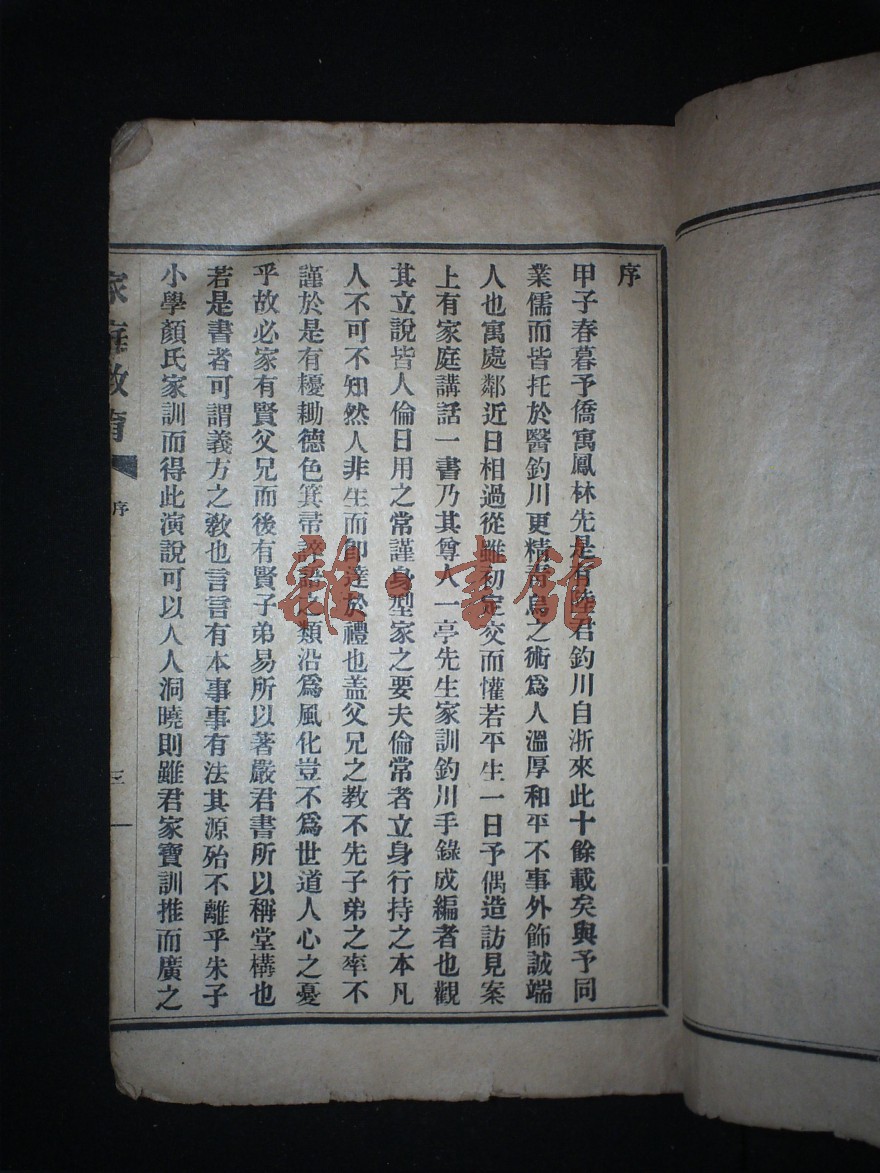 序
甲子春暮予僑寓鳳林先是有陸君釣川自浙來此十餘載矣與予同
業儒而皆托於醫釣川更精青烏之術爲人溫厚和平不事外飾誠端
人也寓處鄰近日相過從雖初定交而懽若平生一日予偶造訪見案
上有家庭講話一書乃其尊人一亭先生家訓釣川手錄成編者也觀
其立說皆人倫日用之常謹身型家之要夫倫常者立身行持之本凡
人不可不知然人非生而卽達於禮也盖父兄之教不先子弟之率不
謹於是有耰耡德色箕帚誶語之類沿爲風化豈不爲世道人心之憂
乎故必家有賢父兄而後有賢子弟易所以著嚴君書所以稱堂構也
若是書者可謂義方之敎也言言有本事事有法其源殆不離乎朱子
小學顏氏家訓而得此演說可以人人洞曉則雖君家寶訓推而廣之
家庭教育
序
三
雜·書館